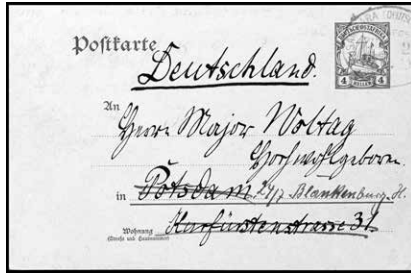 Postkarte
Deutschland.
An
Herrn Major Woltag
Hochwohlgeboren.
in Potsdam 24/7 Blankenburg H.
Wohnung
(Straße und Hausnummer)
Kurfürstenstrasse 31.
4 4